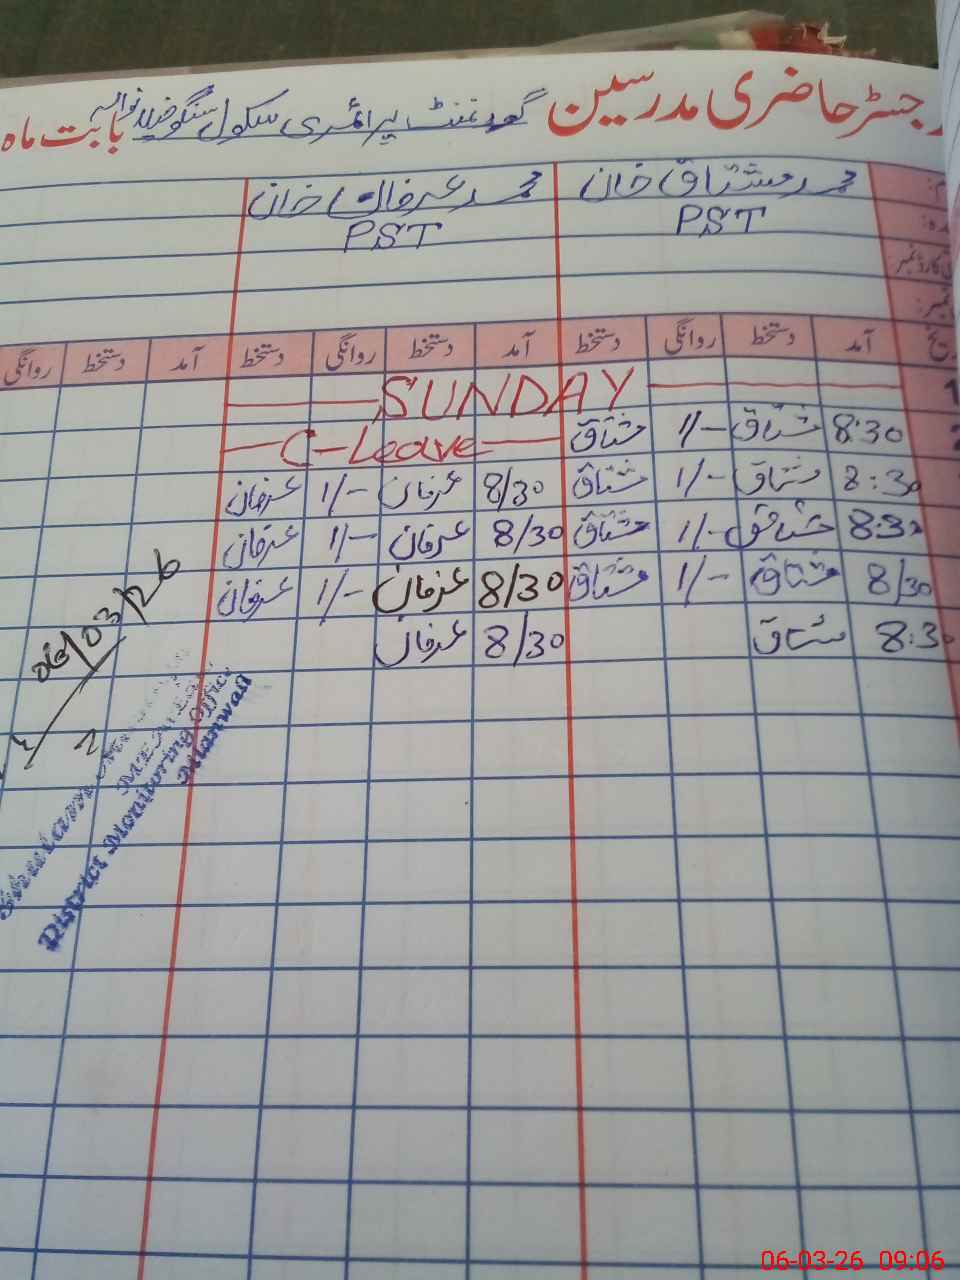 رجسٹر حاضری مدرسین گورنمنٹ پرائمری سکول بابت ماہ
محمد مشتاق خان محمد عرفان خان
PST PST
کارڈ نمبر
آمد دستخط روانگی دستخط آمد دستخط روانگی دستخط آمد دستخط روانگی
SUNDAY
8:30 مشتاق 1/- مشتاق C-Leave
8:30 مشتاق 1/- مشتاق 8/30 عرفان 1/- عرفان
8:30 مشتاق 1/- مشتاق 8/30 عرفان 1/- عرفان
8/30 مشتاق 1/- مشتاق 8/30 عرفان 1/- عرفان
8:30 مشتاق 8/30 عرفان
06/03/26
District Monitoring Officer
Mianwali
06-03-26 09:06